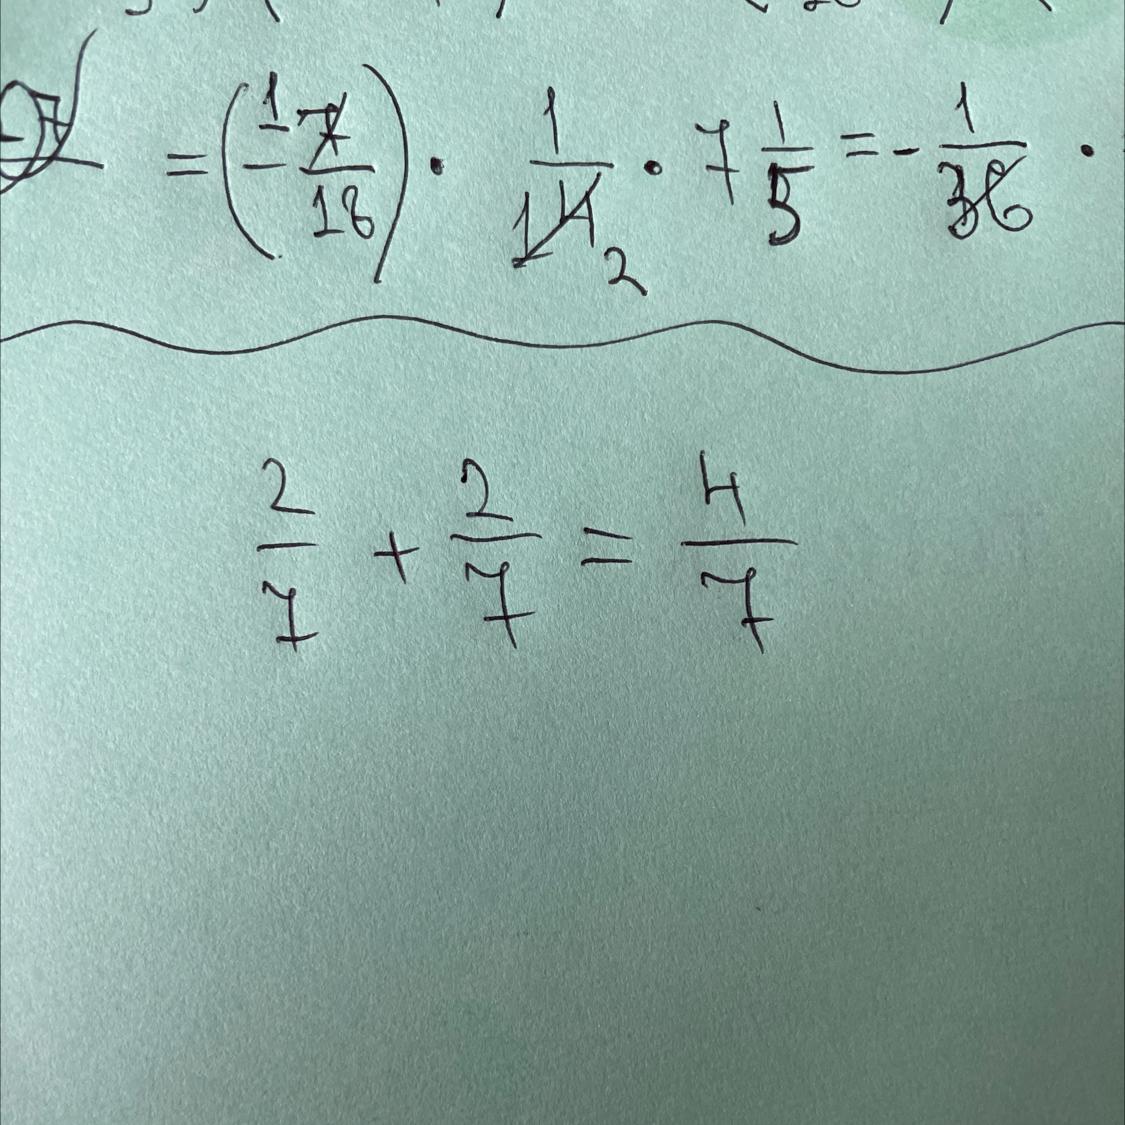 = (-7/18) · 1/14 · 7 1/5 = - 1/36 ·
1
2
2/7 + 2/7 = 4/7